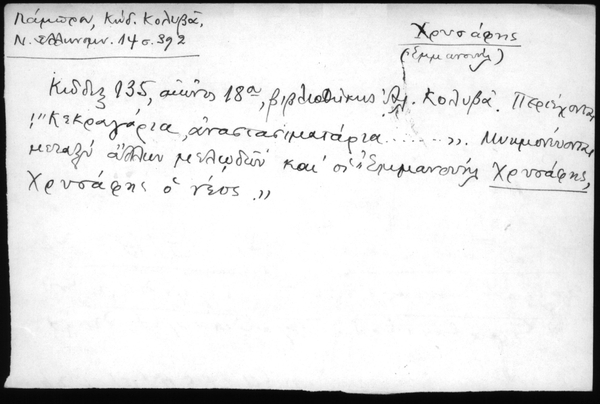 Λάμπρου, Κώδ. Κολυβᾶ,
Ν. Ἑλληνομν. 14 σ. 392
Χρυσάφης
(Ἐμμανουήλ)
Κώδιξ 135, αἰῶνος 18ου, βιβλιοθήκης Ἀλ. Κολυβᾶ. Περιέχονται
"Κεκραγάρια, ἀναστασιματάρια........". Μνημονεύονται
μεταξύ ἄλλων μελωδῶν καί οἱ "Ἐμμανουήλ Χρυσάφης,
Χρυσάφης ὁ νέος."